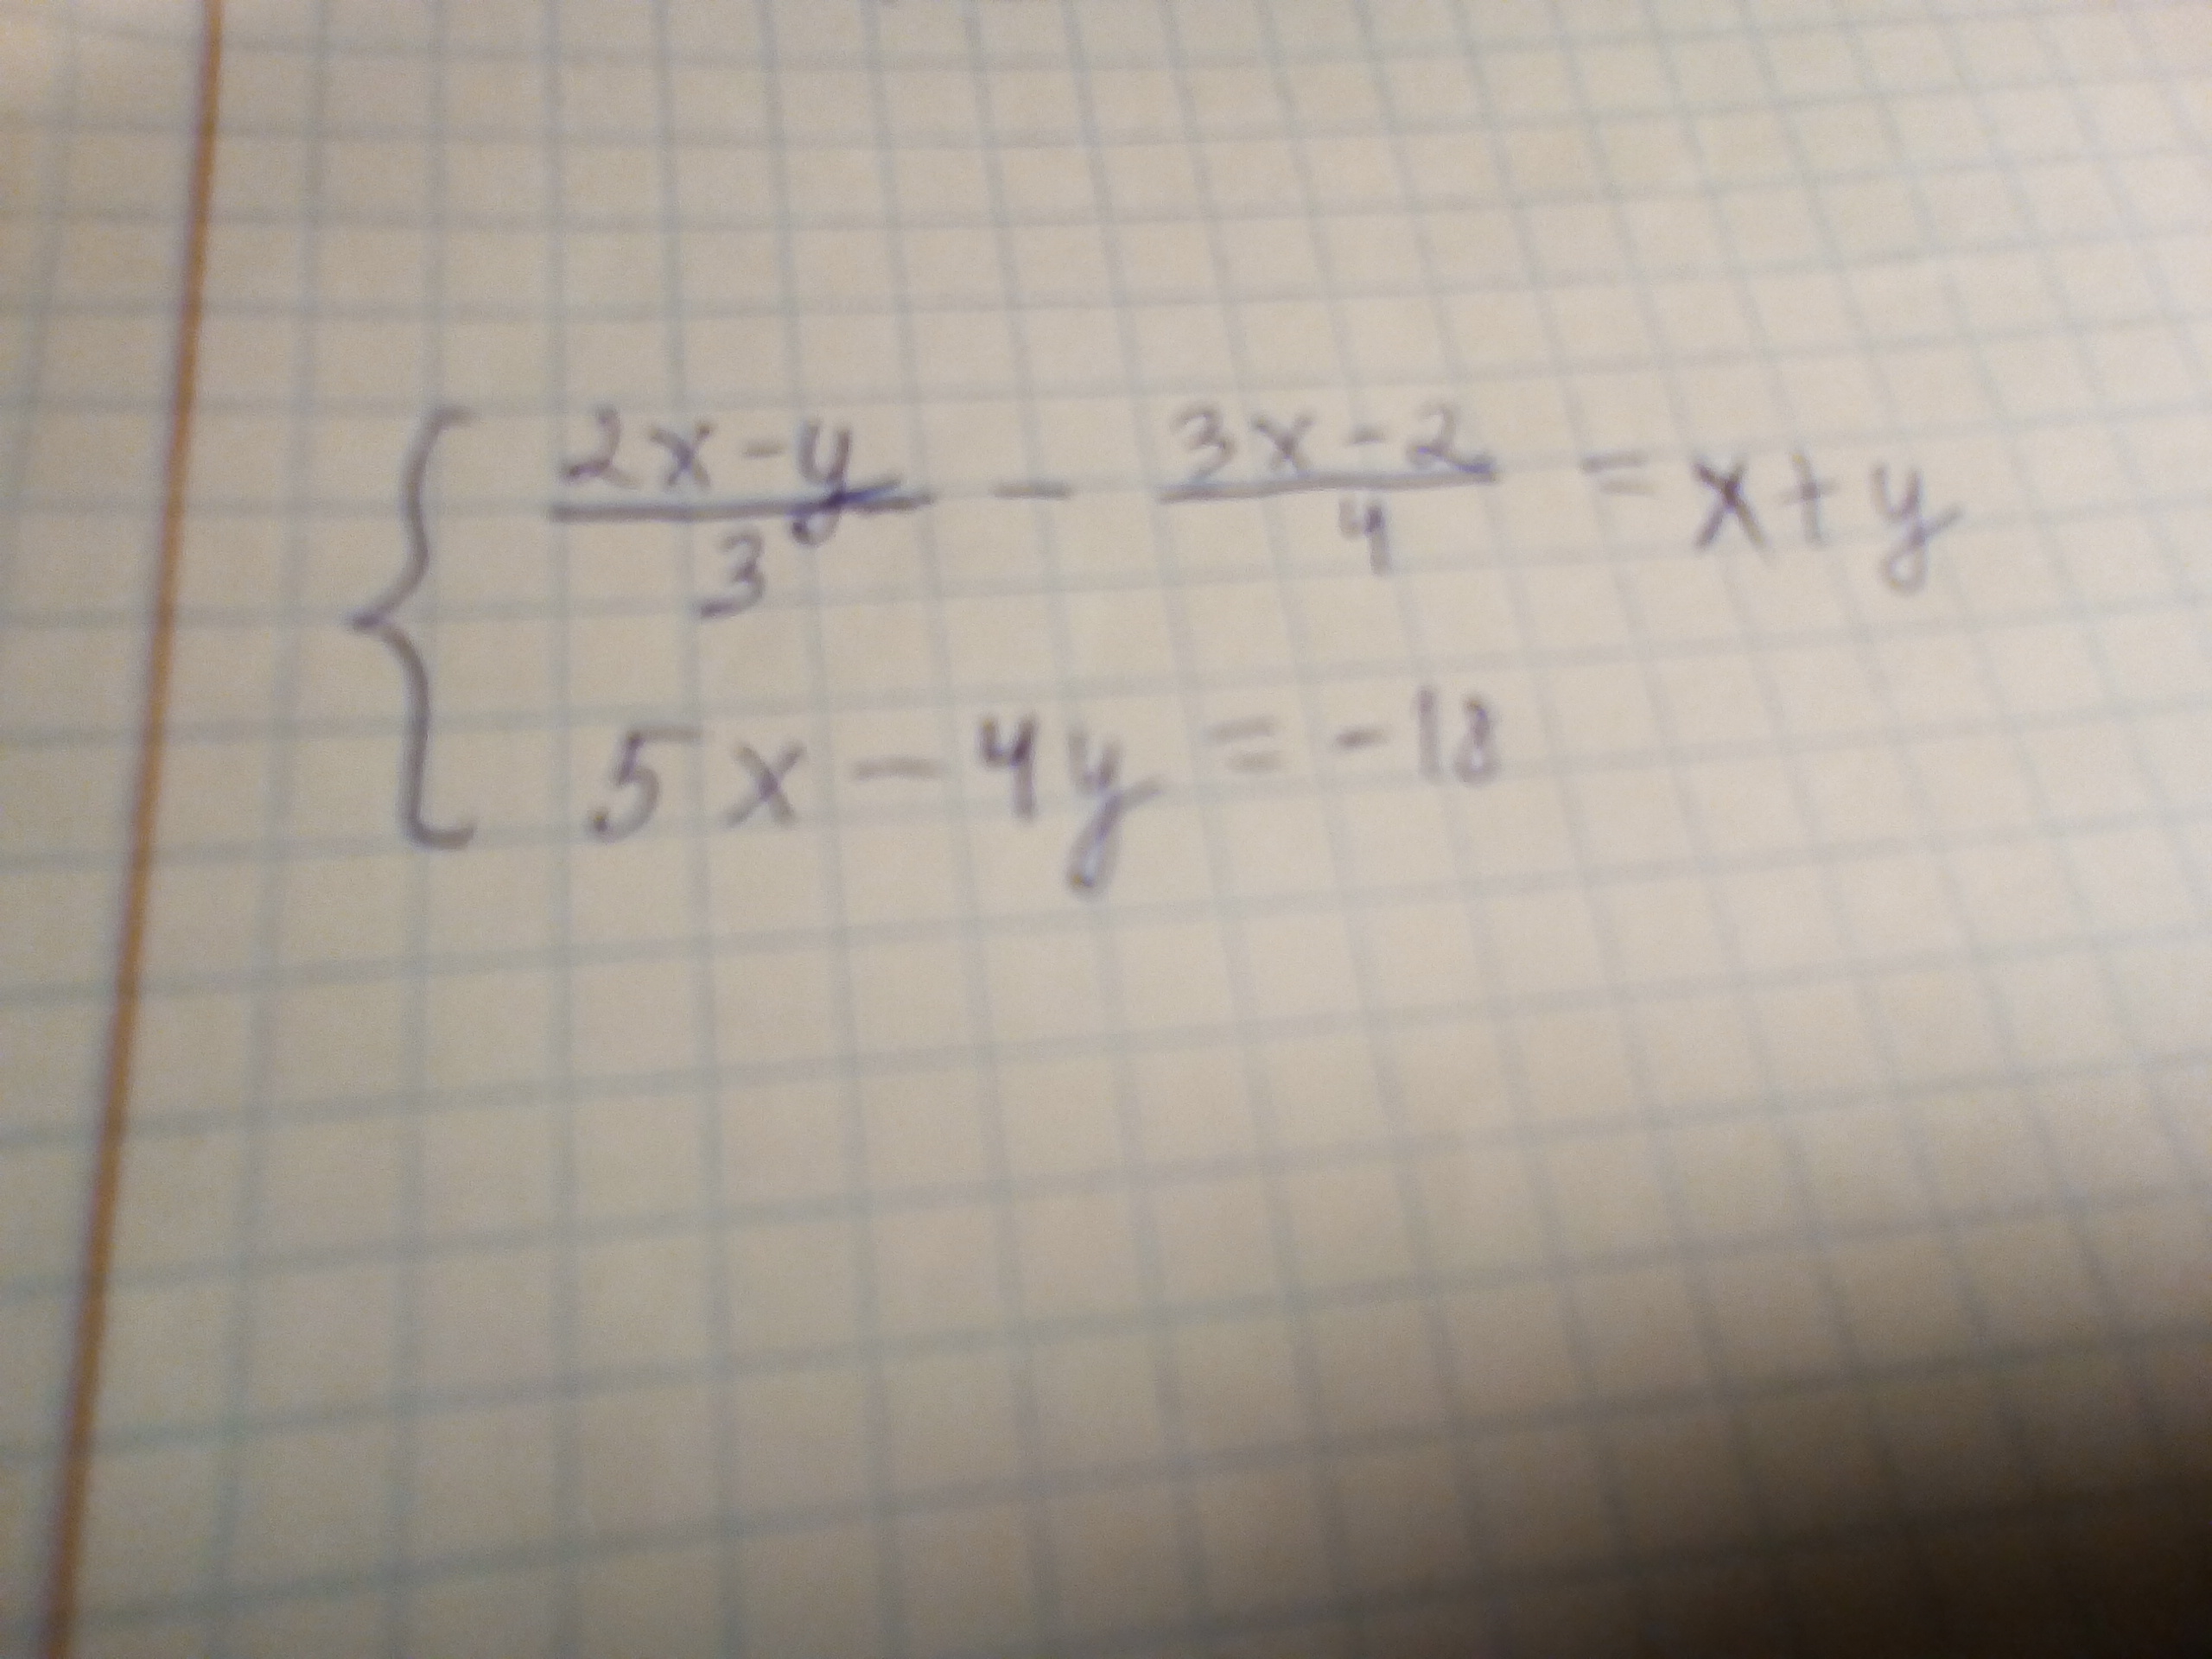 (2x-y)/3 - (3x-2)/4 = x+y
5x-4y = -18